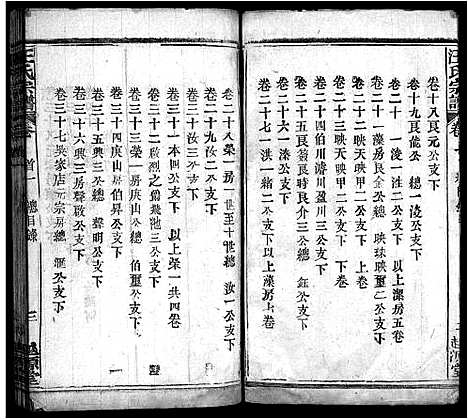 汪氏宗譜
卷十八良元公支下
卷十九良能公 總一浚公支下
卷二十 一浚一公支下 以上潔房五卷
卷二十一潔房良一公總 映球映璽二公支下
卷二十二映天映甲二公支下 上卷
卷二十三映天映甲二公支下 下卷
卷二十四伯川濟川盈川三公支下
卷二十五良 良時良介三公總 鈺公支下
卷二十六一洪一緒二公支下
卷二十七一洪一緒二公支下 以上潔房上卷
卷二十八榮一房一世至十世總 汝一公支下
卷二十九汝二公支下
卷三十汝三公支下
卷三十一本四公支下 以上榮一共四卷
卷三十二啟烈之 飛池三公支下
卷三十三榮一房庚山公總 伯璽公支下
卷三十四庚山房伯昇公支下
卷三十五興三公總 聲明公支下
卷三十六興三房聲啟公支下
卷三十七吳家店元宗房總 公支下
汪氏宗譜 卷首 總目錄 三 越源堂